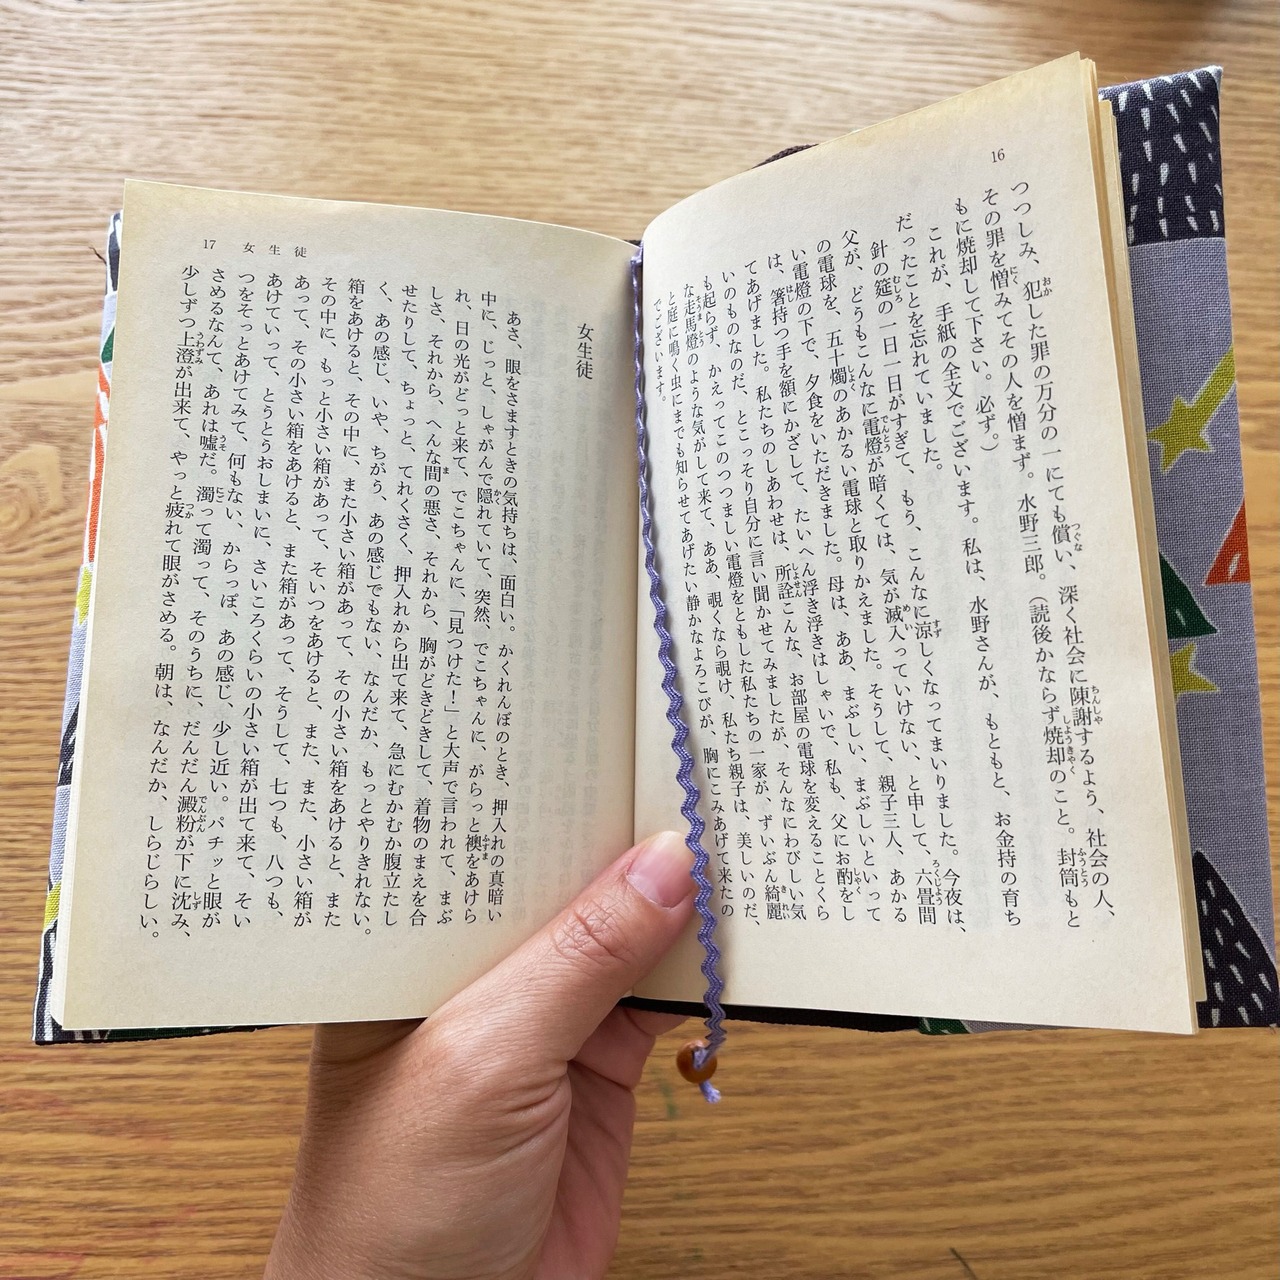 16
つつしみ、犯した罪の万分の一にても償い、深く社会に陳謝するよう、社会の人、
その罪を憎みてその人を憎まず。水野三郎。（読後かならず焼却のこと。封筒もと
もに焼却して下さい。必ず。）
これが、手紙の全文でございます。私は、水野さんが、もともと、お金持の育ち
だったことを忘れていました。
針の筵の一日一日がすぎて、もう、こんなに涼しくなってまいりました。今夜は、
父が、どうもこんなに電燈が暗くては、気が滅入っていけない、と申して、六畳間
の電球を、五十燭のあかるい電球と取りかえました。そうして、親子三人、あかる
い電燈の下で、夕食をいただきました。母は、ああ、まぶしい、まぶしいといって
は、箸持つ手を額にかざして、たいへん浮き浮きはしゃいで、私も、父にお酌をし
てあげました。私たちのしあわせは、所詮こんな、お部屋の電球を変えることくら
いのものなのだ、とこっそり自分に言い聞かせてみましたが、そんなにわびしい気
も起らず、かえってこのつつましい電燈をともした私たちの一家が、ずいぶん綺麗
な走馬燈のような気がして来て、ああ、覗くなら覗け、私たち親子は、美しいのだ、
と庭に鳴く虫にまでも知らせてあげたい静かなよろこびが、胸にこみあげて来たの
でございます。
17 女生徒
女生徒
あさ、眼をさますときの気持ちは、面白い。かくれんぼのとき、押入れの真暗い
中に、じっと、しゃがんで隠れていて、突然、でこちゃんに、がらっと襖をあけら
れ、日の光がどっと来て、でこちゃんに、「見つけた！」と大声で言われて、まぶ
しさ、それから、へんな間の悪さ、それから、胸がどきどきして、着物のまえを合
せたりして、ちょっと、てれくさく、押入れから出て来て、急にむかむか腹立たし
く、あの感じ、いや、ちがう、あの感じでもない、なんだか、もっとやりきれない。
箱をあけると、その中に、また小さい箱があって、その小さい箱をあけると、また
その中に、もっと小さい箱があって、そいつをあけると、また、また、小さい箱が
あって、その小さい箱をあけると、また箱があって、そうして、七つも、八つも、
あけていって、とうとうおしまいに、さいころくらいの小さい箱が出て来て、そい
つをそっとあけてみて、何もない、からっぽ、あの感じ、少し近い。パチッと眼が
さめるなんて、あれは嘘だ。濁って濁って、そのうちに、だんだん澱粉が下に沈み、
少しずつ上澄が出来て、やっと疲れて眼がさめる。朝は、なんだか、しらじらしい。